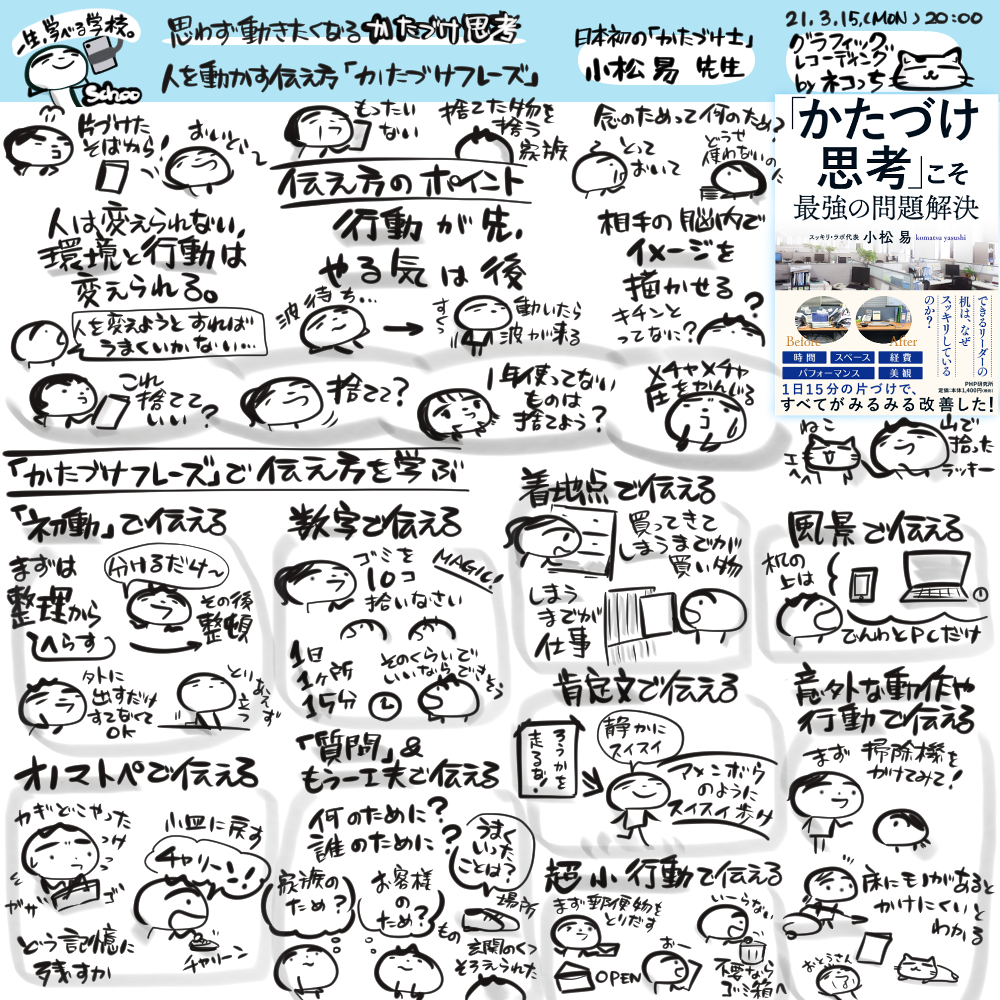 一生、学べる学校。
Schoo
思わず動きたくなるかたづけ思考
人を動かす伝え方「かたづけフレーズ」
日本初の「かたづけ士」
小松易 先生
21.3.15.(MON) 20:00
グラフィック
レコーディング
by ネコっち
片づけた
そばから!
おいどい〜
もったい
ない
捨てた物を
捨う
家族
念のためって何のため?
とって
おいて
どうせ
使わないのに
伝え方のポイント
人は変えられない,
環境と行動は
変えられる。
人を変えようとすれば
うまくいかない…
行動が先,
やる気は後
波待ち…
す〜
動いたら
波が来る
相手の脳内で
イメージを
描かせる
キチンと
ってなに?
?
これ
捨てて
いい?
捨てて?
1年使ってない
ものは
捨てよう?
メチャメチャ
圧をかんじる
「かたづけ
思考」こそ
最強の問題解決
スッキリ・ラボ代表 小松 易 komatsu yasushi
できるリーダーの
机は、なぜ
スッキリしている
のか?
Before
After
時間
スペース
経費
パフォーマンス
美観
PHP研究所
定価:本体1,400円(税別)
1日15分の片づけで、
すべてがみるみる改善した!
ねこ
エヘへ
山で
拾った
ラッキー
「かたづけフレーズ」で伝え方を学ぶ
「初動」で伝える
まずは
整理から
へらす
分けるだけ〜
その後
整頓
外に
出すだけ
すてなくて
OK
とりあえず
立つ
数字で伝える
ゴミを
10コ
拾いなさい
MAGIC!
1日
1ヶ所
15分
そのくらいで
いいならできそう
着地点で伝える
買ってきて
しまうまでが
買い物
しまう
までが
仕事
風景で伝える
机の
上は
でんわとPCだけ
肯定文で伝える
ろうかを
走るな!
静かに
スイスイ
アメンボウ
のように
スイスイ歩け
意外な動作や
行動で伝える
まず 掃除機を
かけてみて!
床にモノがあると
かけにくいと
わかる
おとうさん
オノマトペで伝える
カギどこやった
っけ
ガサゴソ
小皿に戻す
チャリーン!
チャリーン
どう記憶に
残すか
「質問」&
もう一工夫で伝える
何のために?
誰のために?
家族の
ため?
お客様
のため?
うまく
いった
ことは?
場所
もの
玄関のくつ
そろえられた
超小行動で伝える
まず郵便物を
とりだす
OPEN
いーらない
おー
不要なら
ゴミ箱へ